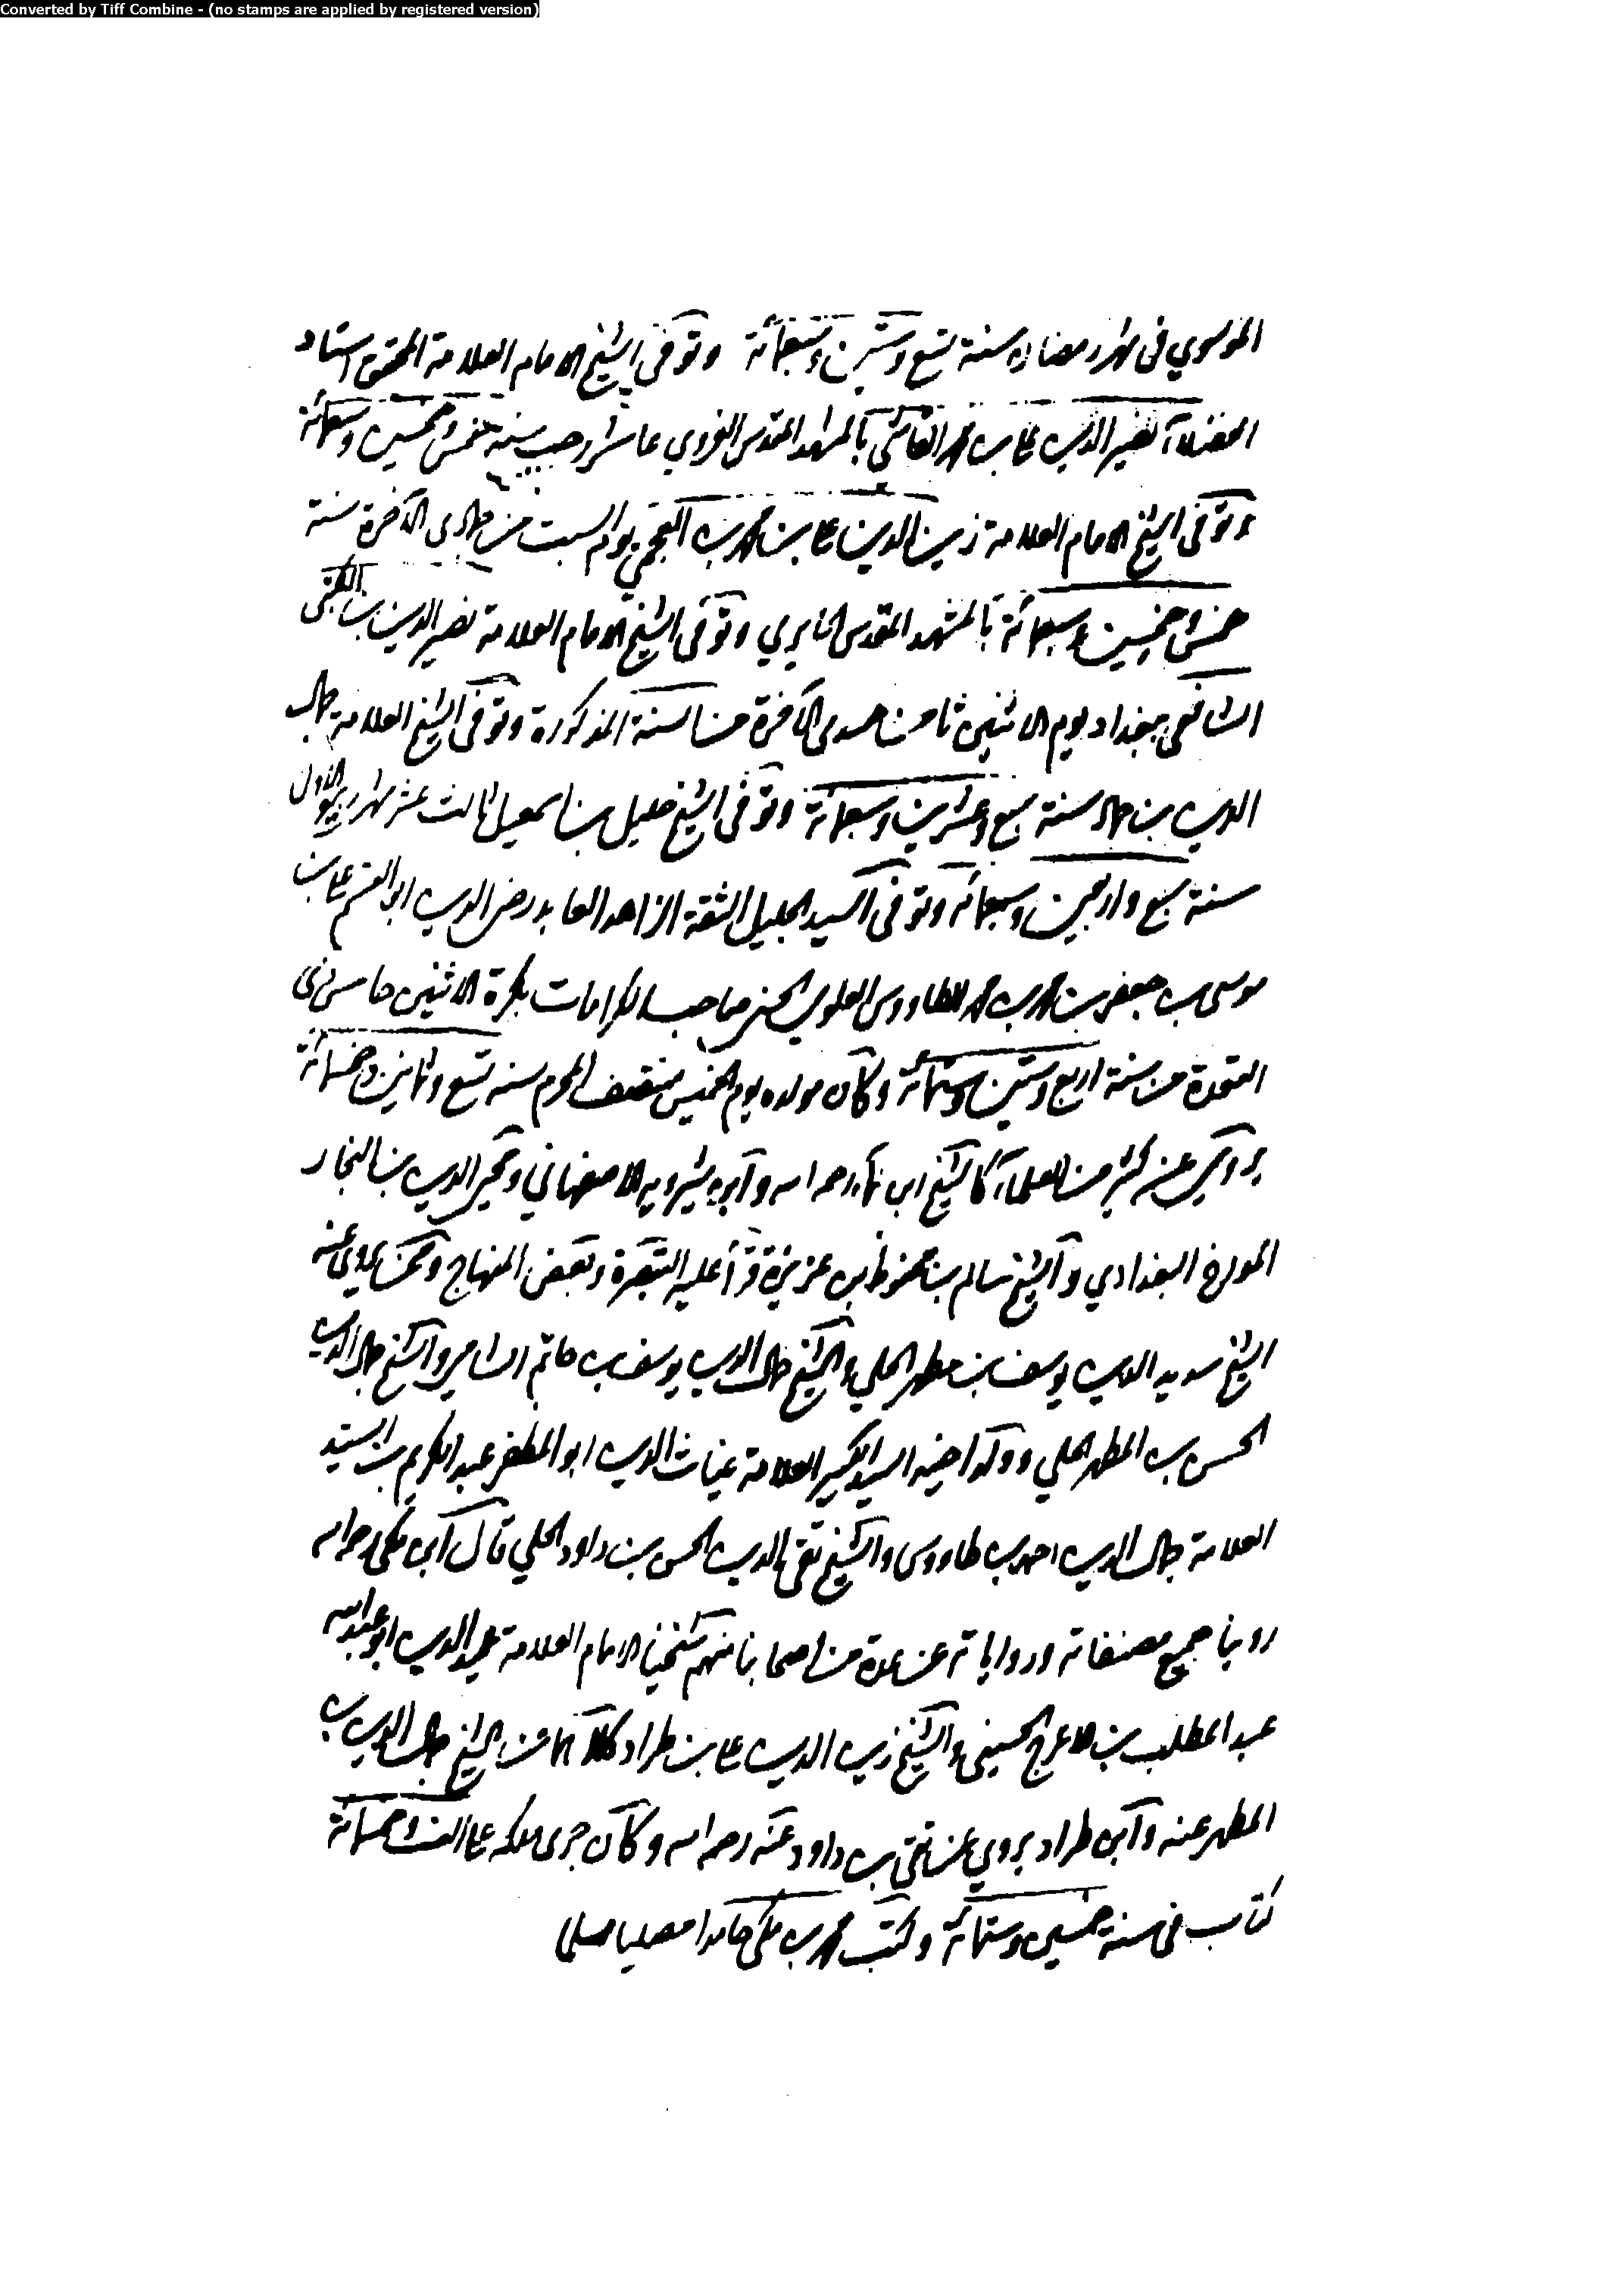 Converted by Tiff Combine - (no stamps are applied by registered version)
الموسوي في شهر رمضان سنة تسع وستين وسبعمائة وتوفي الشيخ الامام العلامة المحقق استاد
الفضلاء نصير الدين علي بن محمد القاشي بالمشهد المقدس الغروي عاشر رجب سنة خمس وخمسين وسبعمائة
وتوفي الشيخ الامام العلامة زين الدين علي بن محمد بن يوم السبت من جمادى الآخرة سنة
خمس وخمسين وسبعمائة بالمشهد المقدس الحايري وتوفي الشيخ الامام العلامة نصير الدين بن
الشافعي ببغداد يوم الاثنين ثامن جمدى الآخرة من السنة المذكورة وتوفي الشيخ العلامة جمال
الدين بن حماد سنة سبع وعشرين وسبعمائة وتوفي الشيخ خليل بن اسمعيل ثالث عشر شهر ربيع الاول
سنة سبع واربعين وسبعمائة وتوفي السيد الجليل الثقة الزاهد العابد رضي الدين ابو القسم علي بن
موسى بن جعفر بن محمد بن محمد الطاووس العلوي الحسني صاحب الكرامات بكرة الاثنين خامس ذي
القعدة من سنة اربع وستين وستمائة وكان مولده يوم الخميس منتصف المحرم سنة تسع وثمانين وخمسمائة
يروي عن كثير من العلماء كالشيخ ابن نما رحمه الله وابن شيرويه الاصفهاني ومحب الدين بن النجار
المورخ البغدادي والشيخ سالم بن محفوظ بن عزيزة قرأ عليه التبصرة وبعض المنهاج وممن يروي عنه
الشيخ سديد الدين يوسف بن مطهر الحلي والشيخ جمال الدين يوسف بن حاتم الشامي والشيخ جمال الدين
الحسن بن المطهر الحلي وولد اخيه السيد الكبير العلامة غياث الدين ابو المظفر عبد الكريم بن السيد
العلامة جمال الدين احمد بن طاووس والشيخ تقي الدين الحسن بن داود الحلي قال ابن مكي رحمه الله
روينا جميع مصنفاته ورواياته عن عدة من اصحابنا منهم شيخنا الامام العلامة عميد الدين ابو عبد الله
عبد المطلب بن الاعرج الحسيني والشيخ زين الدين علي بن طراد كلاهما عن الشيخ جمال الدين بن
المطهر عنه وابن طراد يروي عن تقي بن داود عنه رحمه الله وكان جرى ملكه على الف وخمسمائة
كتاب في سنة خمسين وستمائة وكتب محمد بن مكي حامدا مصليا مسلما